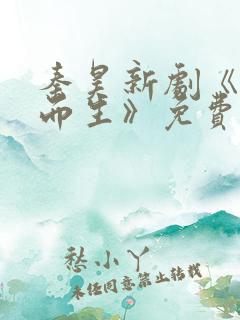 秦昊新剧《
而生》免费
愁小丫
未经同意禁止转载